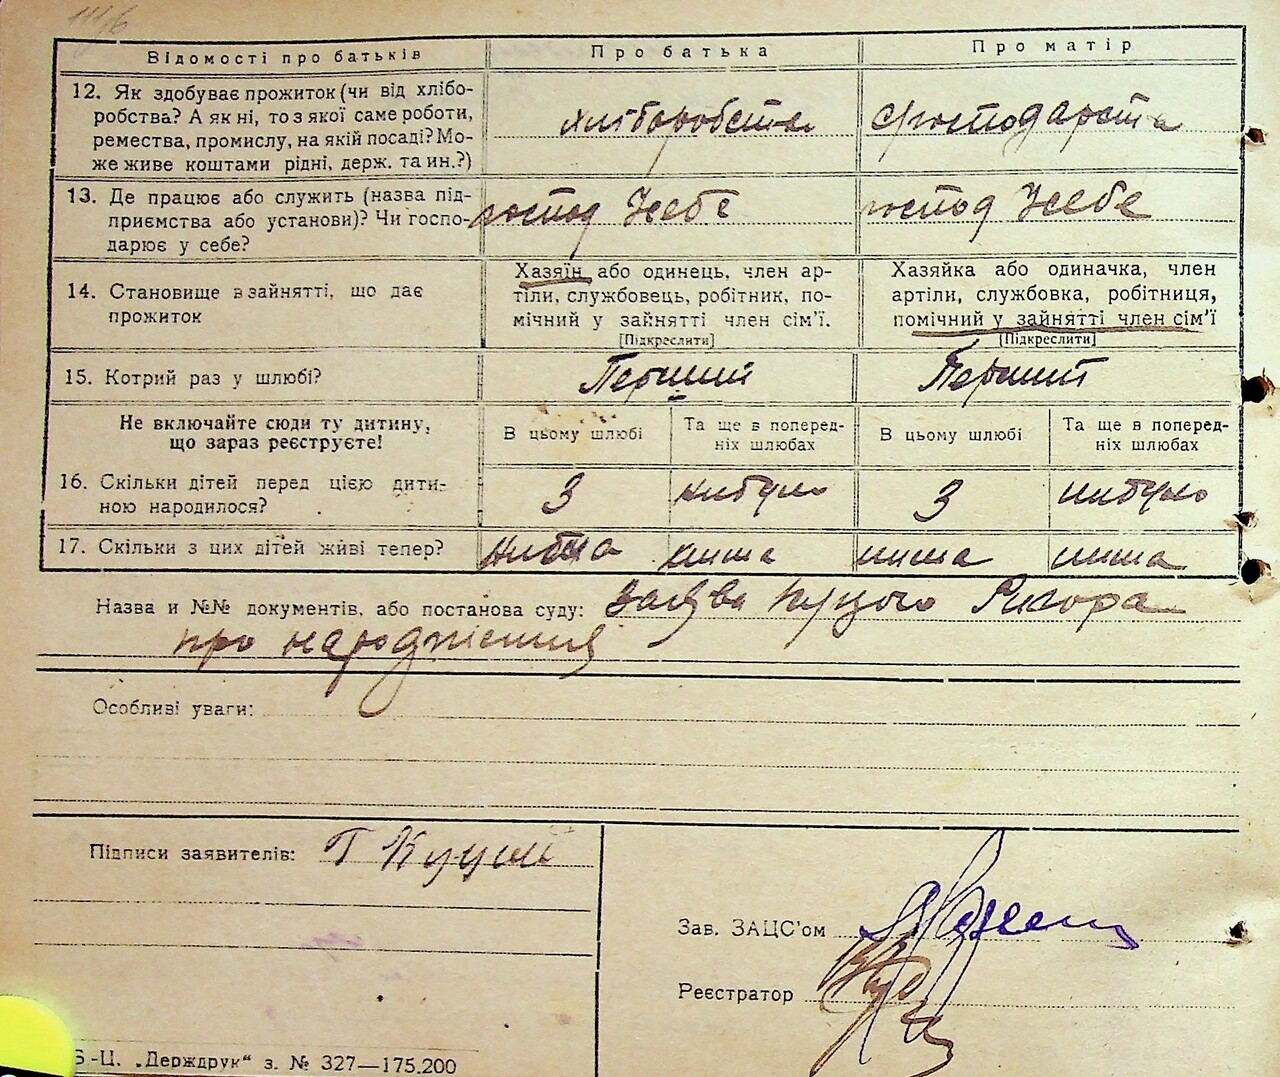 Відомості про батьків	Про батька	Про матір
12. Як здобуває прожиток (чи від хлібо-
робства? А як ні, то з якої саме роботи,
ремества, промислу, на якій посаді? Мо-
же живе коштами рідні, держ. та ин.?)
хліборобства	господарства
13. Де працює або служить (назва під-
приємства або установи)? Чи госпо-
дарює у себе?
господ У себе	господ У себе
14. Становище в зайнятті, що дає
прожиток
Хазяїн або одинець, член ар-
тіли, службовець, робітник, по-
мічний у зайнятті член сім'ї.
[Підкреслити]
Хазяйка або одиначка, член
артіли, службовка, робітниця,
помічний у зайнятті член сім'ї
[Підкреслити]
15. Котрий раз у шлюбі?	Перший	Перший
Не включайте сюди ту дитину,
що зараз реєструєте!
В цьому шлюбі	Та ще в поперед-
ніх шлюбах	В цьому шлюбі	Та ще в поперед-
ніх шлюбах
16. Скільки дітей перед цією дити-
ною народилося?
3	нибуло	3	нибуло
17. Скільки з цих дітей живі тепер?
Назва и №№ документів, або постанова суду: Заява Куцого
про народження
Особливі уваги:
Підписи заявителів: Г Куций
Зав. ЗАЦС'ом
Реєстратор
-Ц. „Держдрук“ з. № 327—175.200